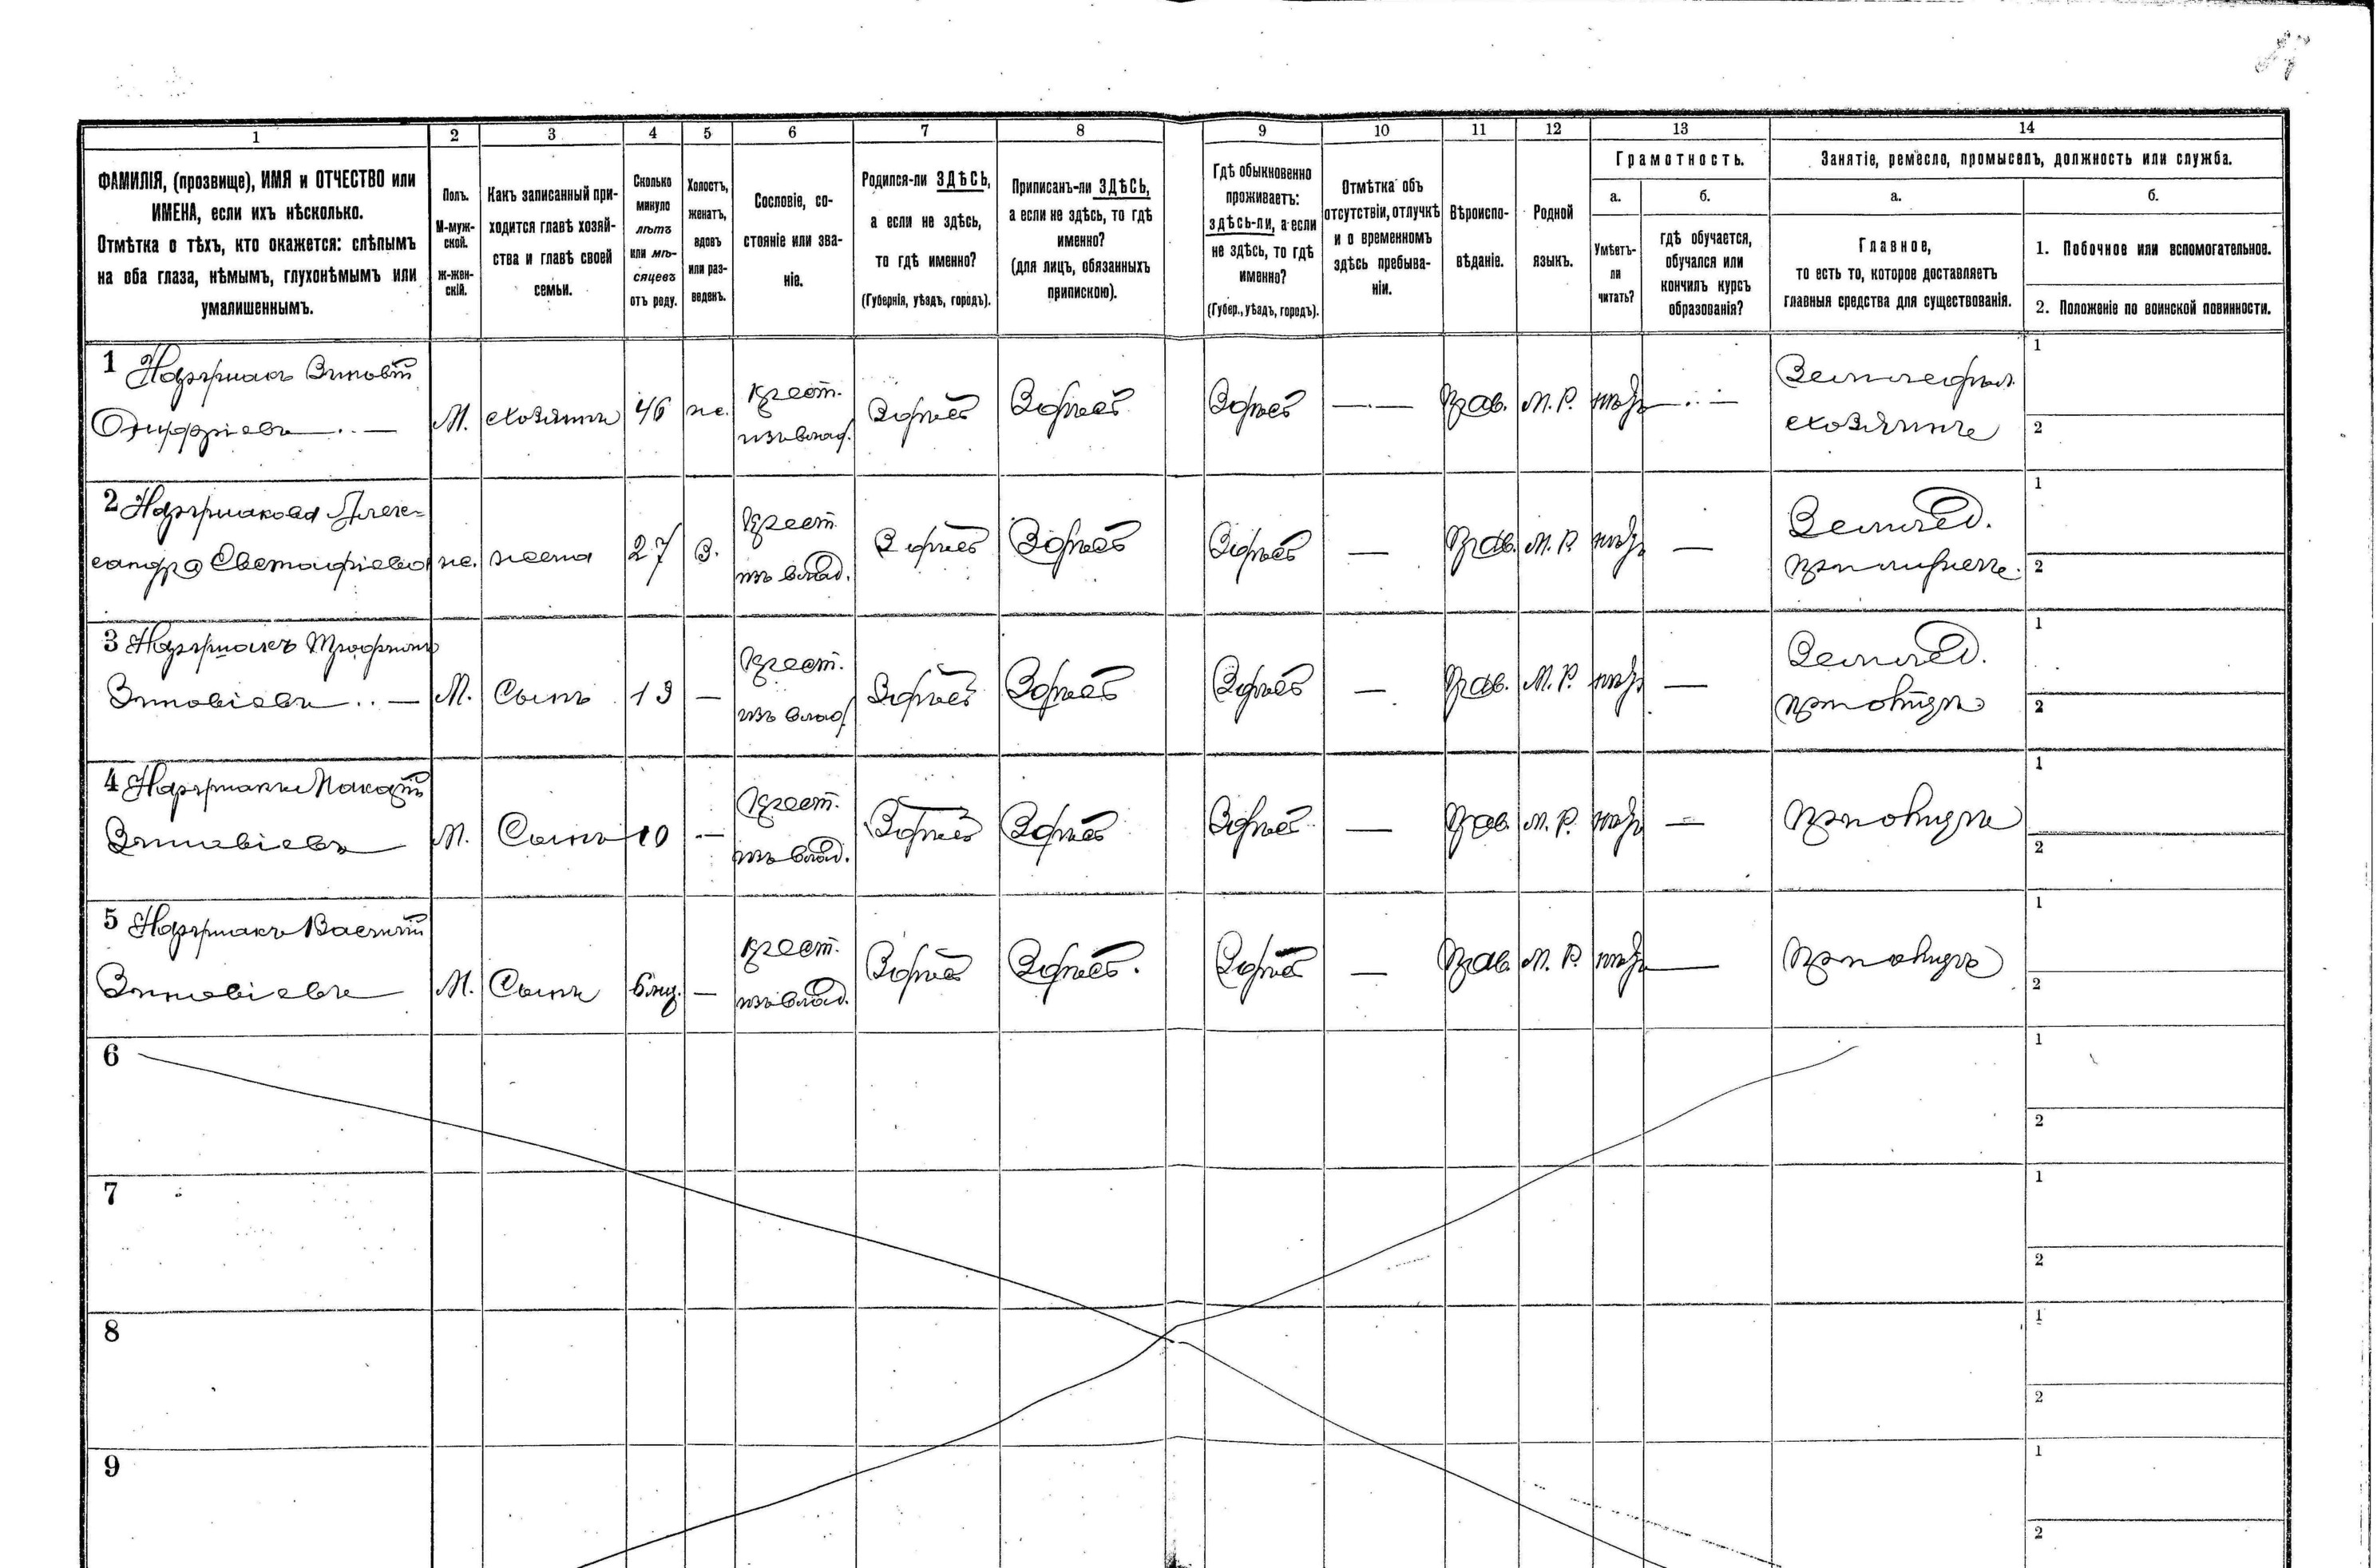 1
2
3
4
5
6
7
8
9
10
11
12
13
14
ФАМИЛІЯ, (прозвище), ИМЯ и ОТЧЕСТВО или
ИМЕНА, если ихъ нѣсколько.
Отмѣтка о тѣхъ, кто окажется: слѣпымъ
на оба глаза, нѣмымъ, глухонѣмымъ или
умалишеннымъ.
Полъ.
М-муж-
ской.
ж-жен-
скій.
Какъ записанный при-
ходится главѣ хозяй-
ства и главѣ своей
семьи.
Сколько
минуло
лѣтъ
или мѣ-
сяцевъ
отъ роду.
Холостъ,
женатъ,
вдовъ
или раз-
веденъ.
Сословіе, со-
стояніе или зва-
ніе.
Родился-ли ЗДѢСЬ,
а если не здѣсь,
то гдѣ именно?
(Губернія, уѣздъ, городъ).
Приписанъ-ли ЗДѢСЬ,
а если не здѣсь, то гдѣ
именно?
(для лицъ, обязанныхъ
припискою).
Гдѣ обыкновенно
проживаетъ:
ЗДѢСЬ-ЛИ, а если
не здѣсь, то гдѣ
именно?
(Губер., уѣздъ, городъ).
Отмѣтка объ
отсутствіи, отлучкѣ
и о временномъ
здѣсь пребыва-
ніи.
Вѣроиспо-
вѣданіе.
Родной
языкъ.
Грамотность.
а.
Умѣетъ-
ли
читать?
б.
гдѣ обучается,
обучался или
кончилъ курсъ
образованія?
Занятіе, ремесло, промыселъ, должность или служба.
а.
Главное,
то есть то, которое доставляетъ
главныя средства для существованія.
б.
1. Побочное или вспомогательное.
2. Положеніе по воинской повинности.
1 Зиновій
Онуфріевъ
М. хозяинъ 46 ж. крест.
изъ влад. здѣсь здѣсь здѣсь — прав. М. Р. нѣтъ —
хозяинъ
1
2
2 Алек-
сандра ж. жена 27 З. крест.
изъ влад. здѣсь здѣсь здѣсь — прав. М. Р. нѣтъ —
Землед.
при мужѣ.
1
2
3 Трофимъ
Зиновіевъ М. Сынъ 13 — крест.
изъ влад. здѣсь здѣсь здѣсь — прав. М. Р. нѣтъ —
Землед.
при отцѣ
1
2
4
Зиновіевъ М. Сынъ 10 — крест.
изъ влад. здѣсь здѣсь здѣсь — прав. М. Р. нѣтъ —
при отцѣ
1
2
5 Василій
Зиновіевъ М. Сынъ 6 мц. — крест.
изъ влад. здѣсь здѣсь. здѣсь — прав. М. Р. нѣтъ —
при отцѣ
1
2
6
1
2
7
1
2
8
1
2
9
1
2